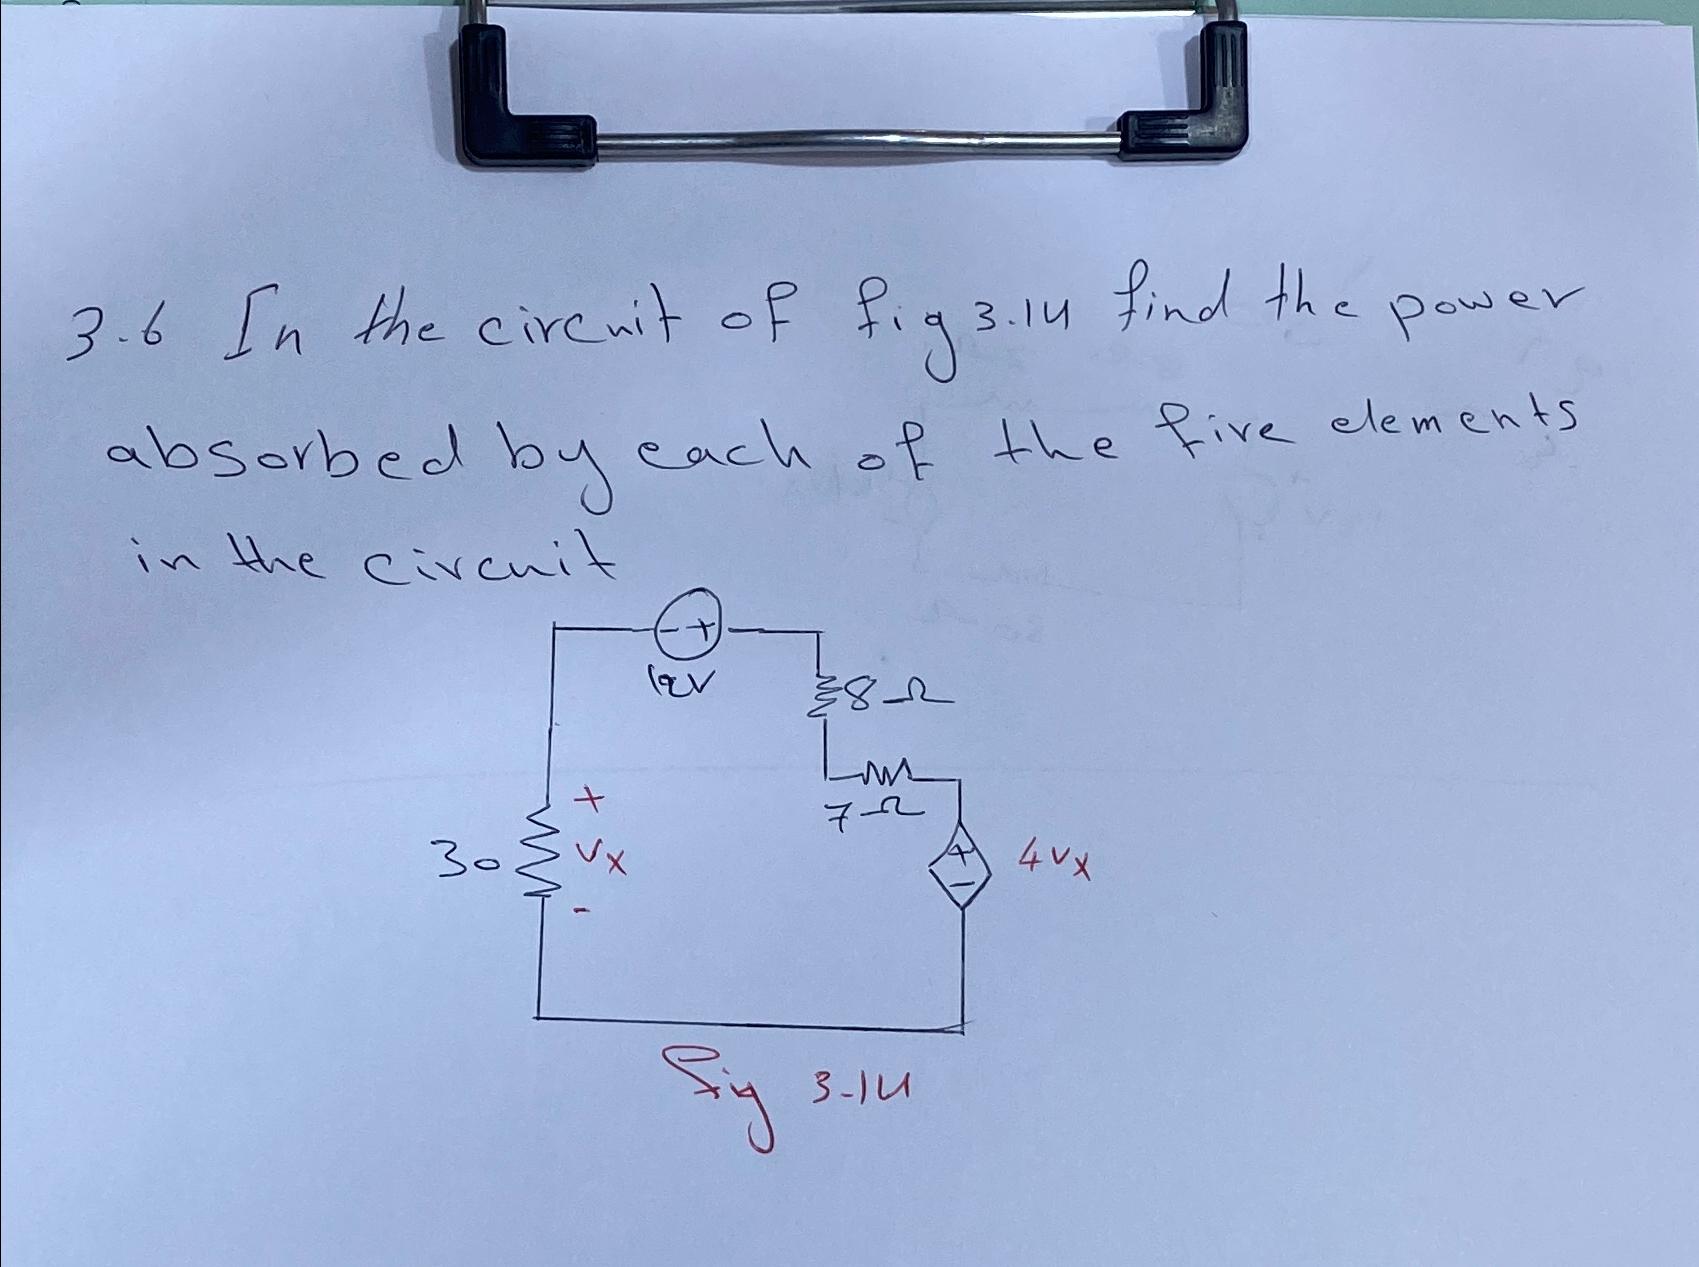 3.6 In the circuit of fig 3.14 find the power
absorbed by each of the five elements
in the circuit
- +
12V
8Ω
7Ω
+
30 Vx
-
+
-
4Vx
fig 3-14